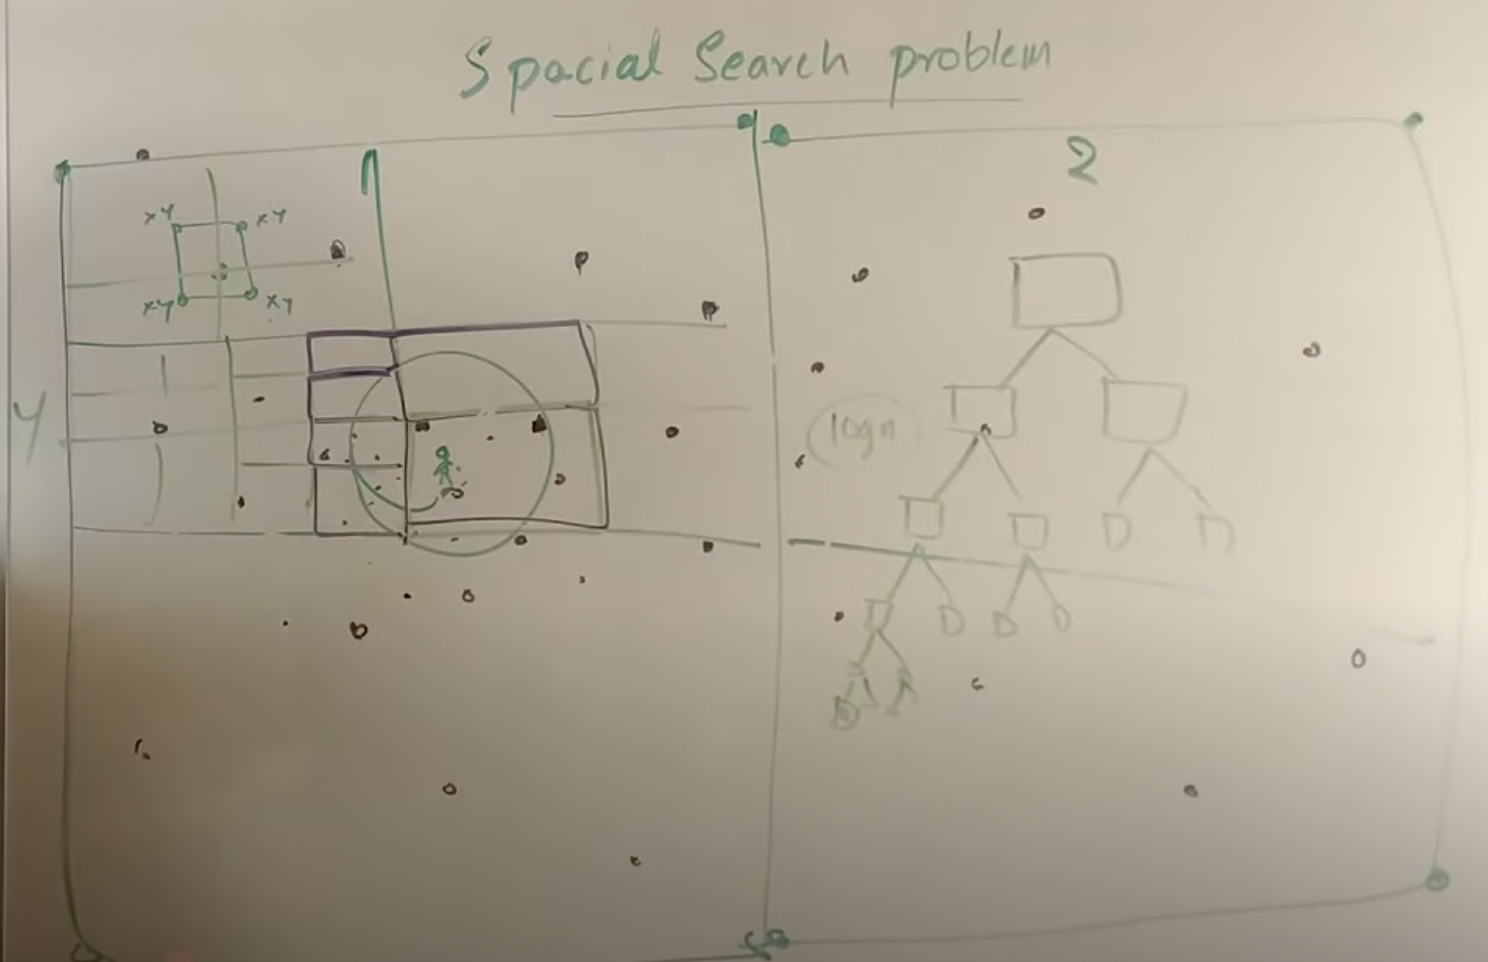 Spacial Search problem
1
2
xy xy
xy xy
Y
logn